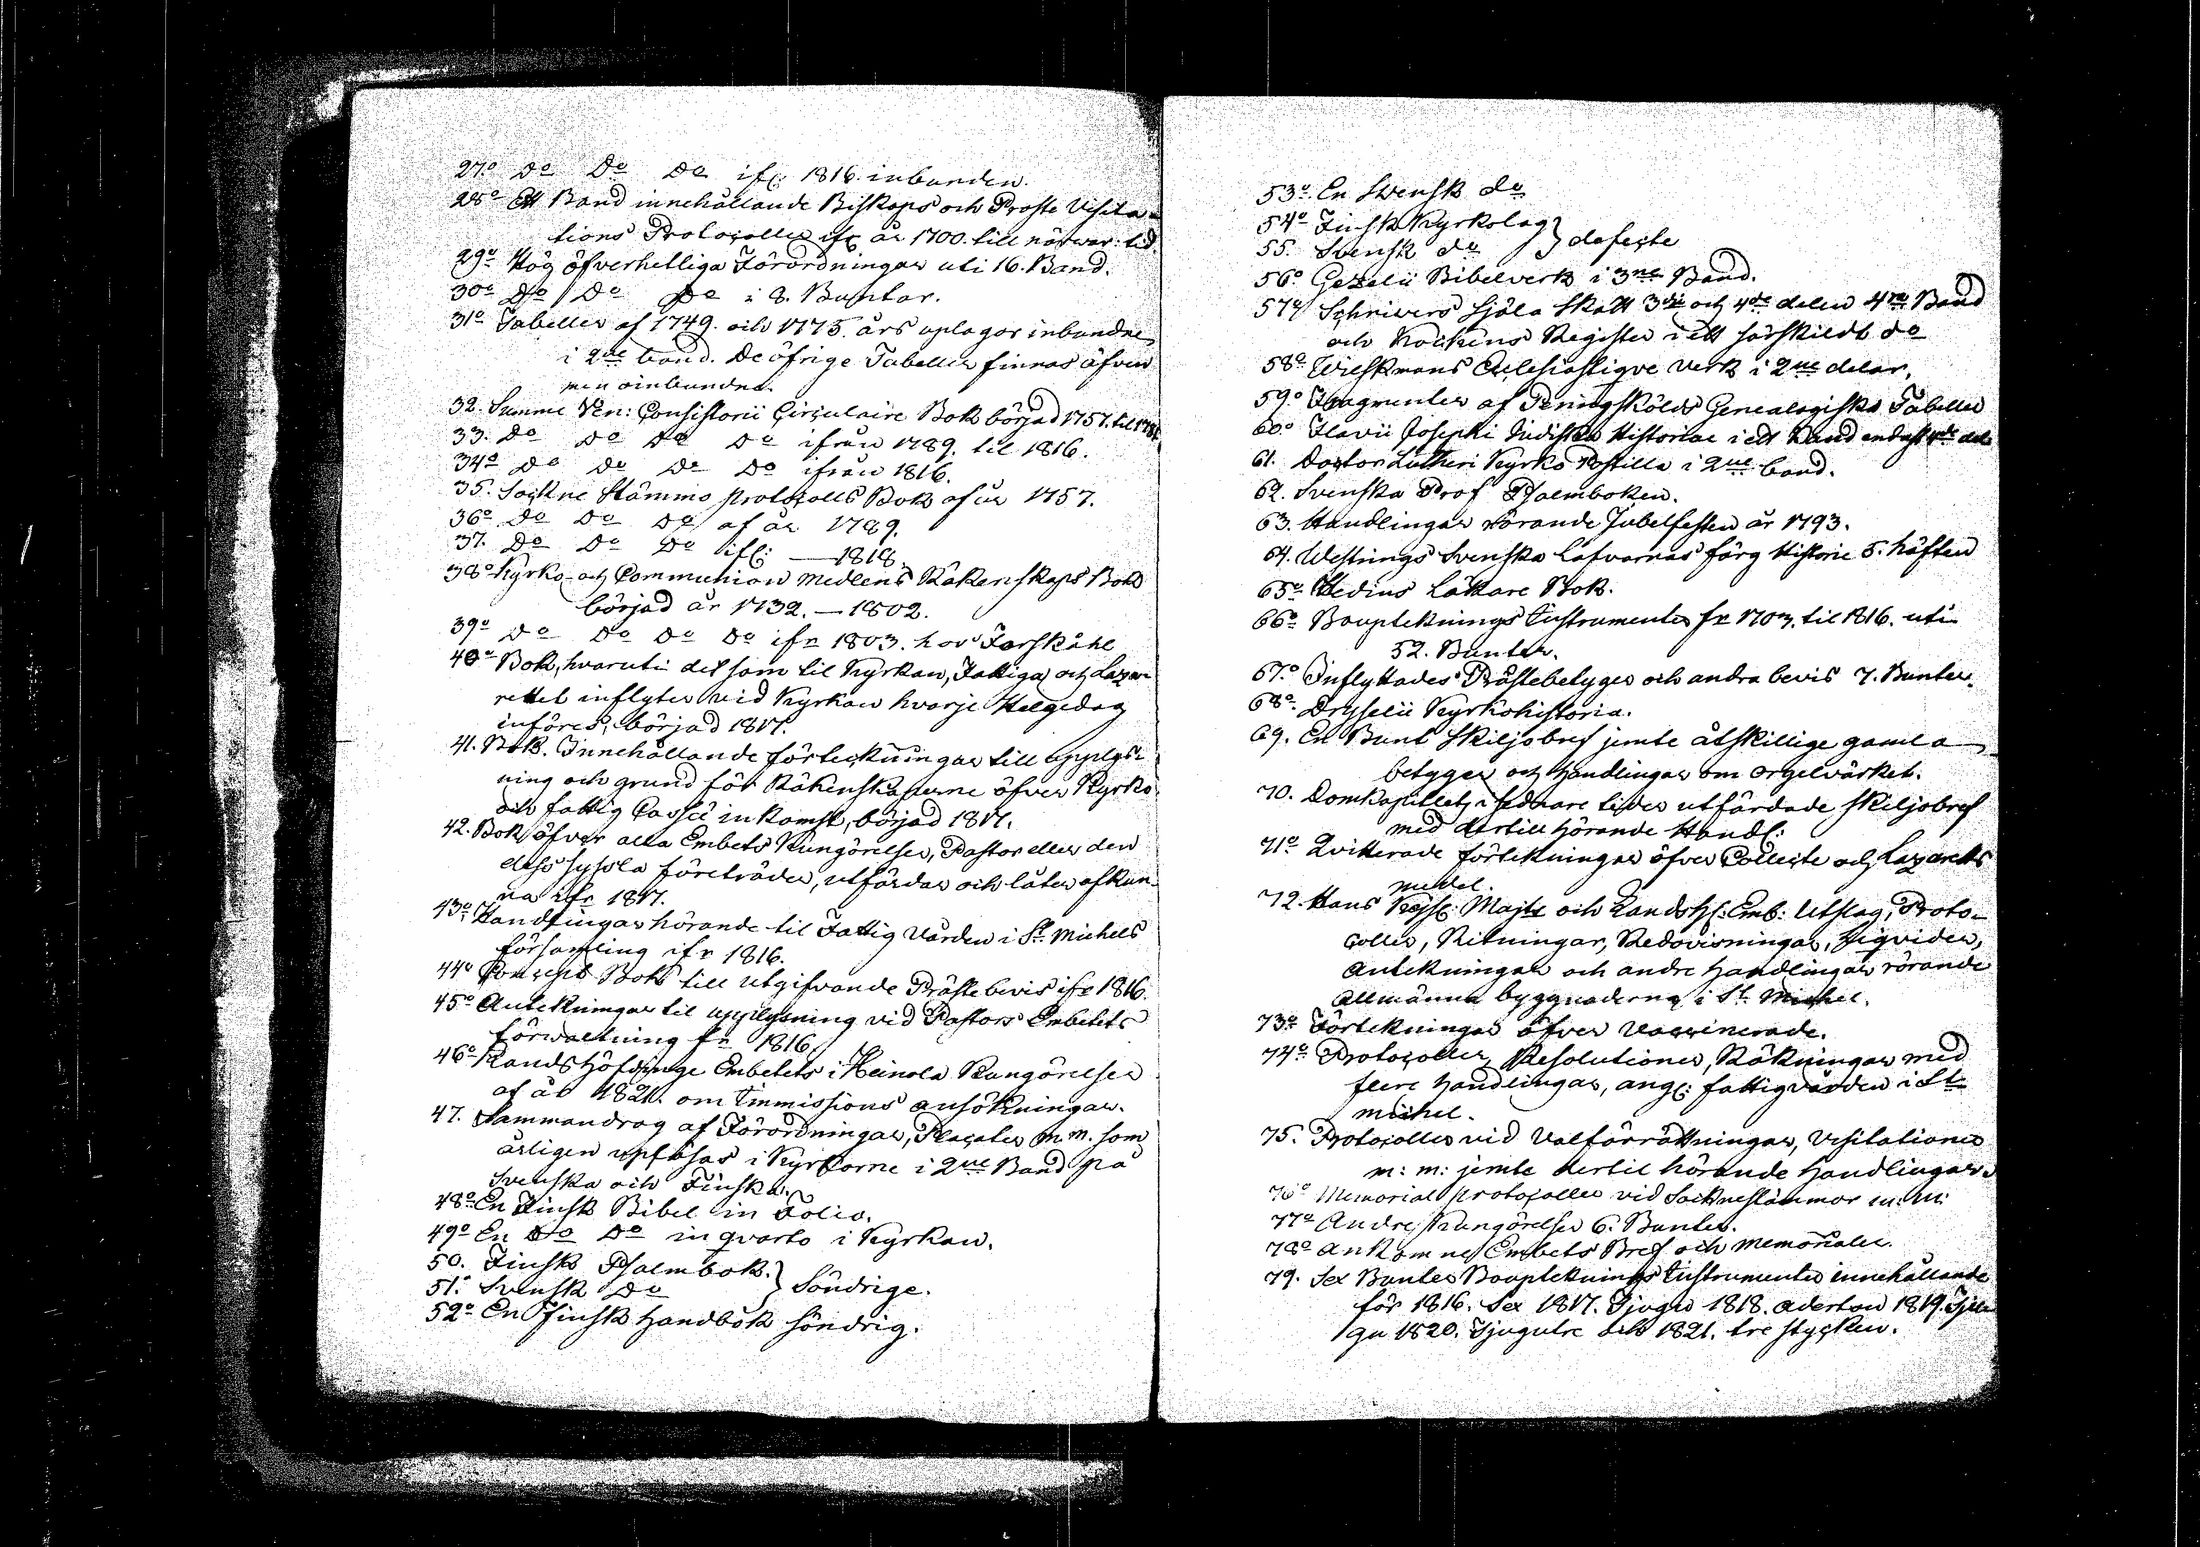 27:o Do Do Do ifr: 1816. inbunden.
28o Ett Band innehållande Biskops och Proste Visita-
tions Protocoller ifr år 1700. till närvar: tid.
29o Hög öfverhetliga Förordningar uti 16. Band.
30o Do Do Do i 8. Buntar.
31o Tabeller af 1749. och 1775. års uplagor inbundne
i 2ne band. De öfrige Tabeller finnas äfven
men oinbundna.
32. Summe Ven: Consistorii Circulaire Bok börjad 1757. til
33. Do Do Do Do ifrån 1789. til 1816.
34o Do Do Do Do ifrån 1816.
35. Sockne Stämmo protocolls Bok af år 1757.
36o Do Do Do af år 1789.
37. Do Do Do ifr: — 1818.
38o Kyrko- och Communion Medlens Räkenskaps Bok
börjad år 1732. — 1802.
39o Do Do Do Do ifr 1803. hos Forskåhl
40o Bok, hvaruti det som til Kyrkan, Fattiga och Laza-
rettet inflyter vid Kyrkan hvarje Helgedag
införes, börjad 1817.
41. Bok. Innehållande förteckningar till upplys-
ning och grund för Räkenskaperne öfver Kyrko
och fattig Cassæ inkomst, börjad 1817.
42. Bok öfver alla Embets Kungörelser, Pastor eller den
dess syssla företräder, utfärdar och låter afkun-
na ifr 1817.
43o Handlingar hörande til Fattig Vården i St Michels
församling ifr 1816.
44o Concept Bok till utgifvande Prästebevis ifr 1816.
45o Antekningar til upplysning vid Pastors Embetets
förvaltning fr 1816.
46o Landshöfdinge Embetets i Heinola Kungörelser
af år 1821. om Immissions ansökningar.
47. Sammandrag af Förordningar, Placater m.m. som
årligen upläsas i Kyrkorne i 2ne Band på
Svenska och Finska.
48o En Finsk Bibel in Folio.
49o En Do Do in qvarto i Kyrkan.
50. Finsk Psalmbok. }
51.o Svensk Do } Söndrige.
52o En Finsk Handbok söndrig.
53o En Svensk do
54o Finsk Kyrkolag }
55. Svensk do } defecte
56o Gezelii Bibelverk i 3ne Band.
57 Schrivers Själa Skatt 3die och 4de delen 4ra Band
och Kockens Register i ett särskildt do
58o Wilskmans Eclesiastiqve Verk i 2ne delar.
59.o Fragmenter af Peringskölds Genealogiska Tabeller
60o Flavii Josephi Judiska Historiae i ett Band endast
61. Doctor Lutheri Kyrko Postilla i 2ne band.
62. Svenska Prof Psalmboken.
63. Handlingar rörande Jubelfesten år 1793.
64. Westrings Svenska Lafvarnas färg Historie 5. häften
65o Hedins Läkare Bok.
66o Bouptecknings Instrumenter fr 1703. til 1816. uti
52. Bunter.
67.o Inflyttades Prästebetyger och andra bevis 7. Bunter.
68o Dryselii Kyrkohistoria.
69. En Bunt Skiljobref jemte åtskillige gamla
betyger och Handlingar om Orgelvärket.
70. Domkapitlets i sednare tider utfärdade skiljobref
med dertill hörande Handl:
71o Qvitterade förtekningar öfver Collecte och Lazaretts
medel.
72. Hans Kejs: Majts och Landsh: Emb: Utslag, Proto-
coller, Ritningar, Redovisningar, Liqvider,
Antekningar och andre Handlingar rörande
Allmänna byggnaderna i St. Michel.
73o Förtekningar öfver Vaccinerade.
74o Protocoller, Resolutioner, Räkningar med
flere Handlingar, ang: fattigvården i St
Michel.
75. Protocoller vid Valförrättningar, Visitationer
m: m: jemte dertil hörande Handlingar
76o Memorial protocoller vid Socknestämmor m: m:
77o Andre Kungörelser 6. Bunter.
78o Ankomne Embets Bref och Memorialer.
79. Sex Bunter Bouptecknings Instrumenter innehållande
för 1816. Sex 1817. Tjugu 1818. Aderton 1819. Tju-
gu 1820. Tjugutre och 1821. tre stycken.